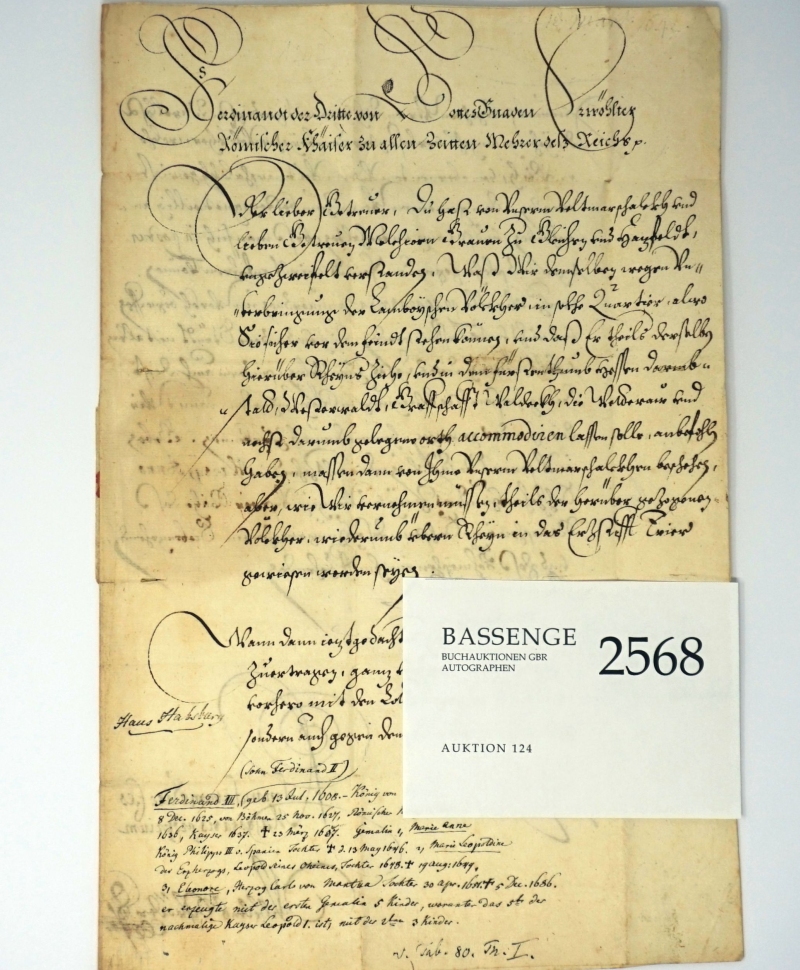 Ferdinandt der Dritte von Gottes Gnaden Erwöhlter
Römischer Khäiser zu allen Zeitten Mehrer deß Reichs p.
lieber Getreuer, Du hast von Unserm Veltmarschalckh und
lieben Getreuen Melchiorn Grauen zu Gleichen und Hatzfeldt,
verstanden, Waß Wir demselben wegen Un-
terbringung der Lamboyschen Völckher, in solche Quartier, alwo
Sie sicher vor dem feindt stehen können, und daß Er theils derselben
hierüber Rheyns ziehe, und in dem fürstenthumb Hessen Darmb-
statt, Westerwaldt, Graffschafft Waldeckh, die Wederaw und
nechst darumb gelegene orth accommodiren lassen solle, anbefohlen
haben, massen dann von Ihme Unserm Veltmarschalckhen beschehen,
aber, wie Wir vernehmen müssen, theils der herüber gezogenen
Völckher, wiederumb übern Rheyn in das Ertzstifft Trier
gewiesen worden seyen.
Wann dann ietzt gedacht
zuertragen, ganz
vorhero mit den
sondern auch gegen den
BASSENGE
BUCHAUKTIONEN GBR
AUTOGRAPHEN
2568
AUKTION 124
Haus Habsburg
(Sohn Ferdinand II)
Ferdinand III, (geb. 13 Jul. 1608. - König von
8 Dec. 1625, von Böhmen 25 Nov. 1627, Römischer
1636, Kayser 1637. † 23 März 1657. Gemalin 1, Maria Anna
König Philipps III v. Spanien Tochter † d. 13 May 1646. 2, Maria Leopoldine
des Erzherzogs, Leopold seines Oheimes, Tochter 1648. † 19 Aug: 1649.
3, Eleonore, Herzog Carls von Mantua Tochter 30 Apr. 1651. † 5 Dec. 1686.
er erzeugte mit der ersten Gemalin 5 Kinder, worunter das 5te der
nachmalige Kayser Leopold I. ist, mit der 3 Kinder.
v. Tab. 80. Th. I.